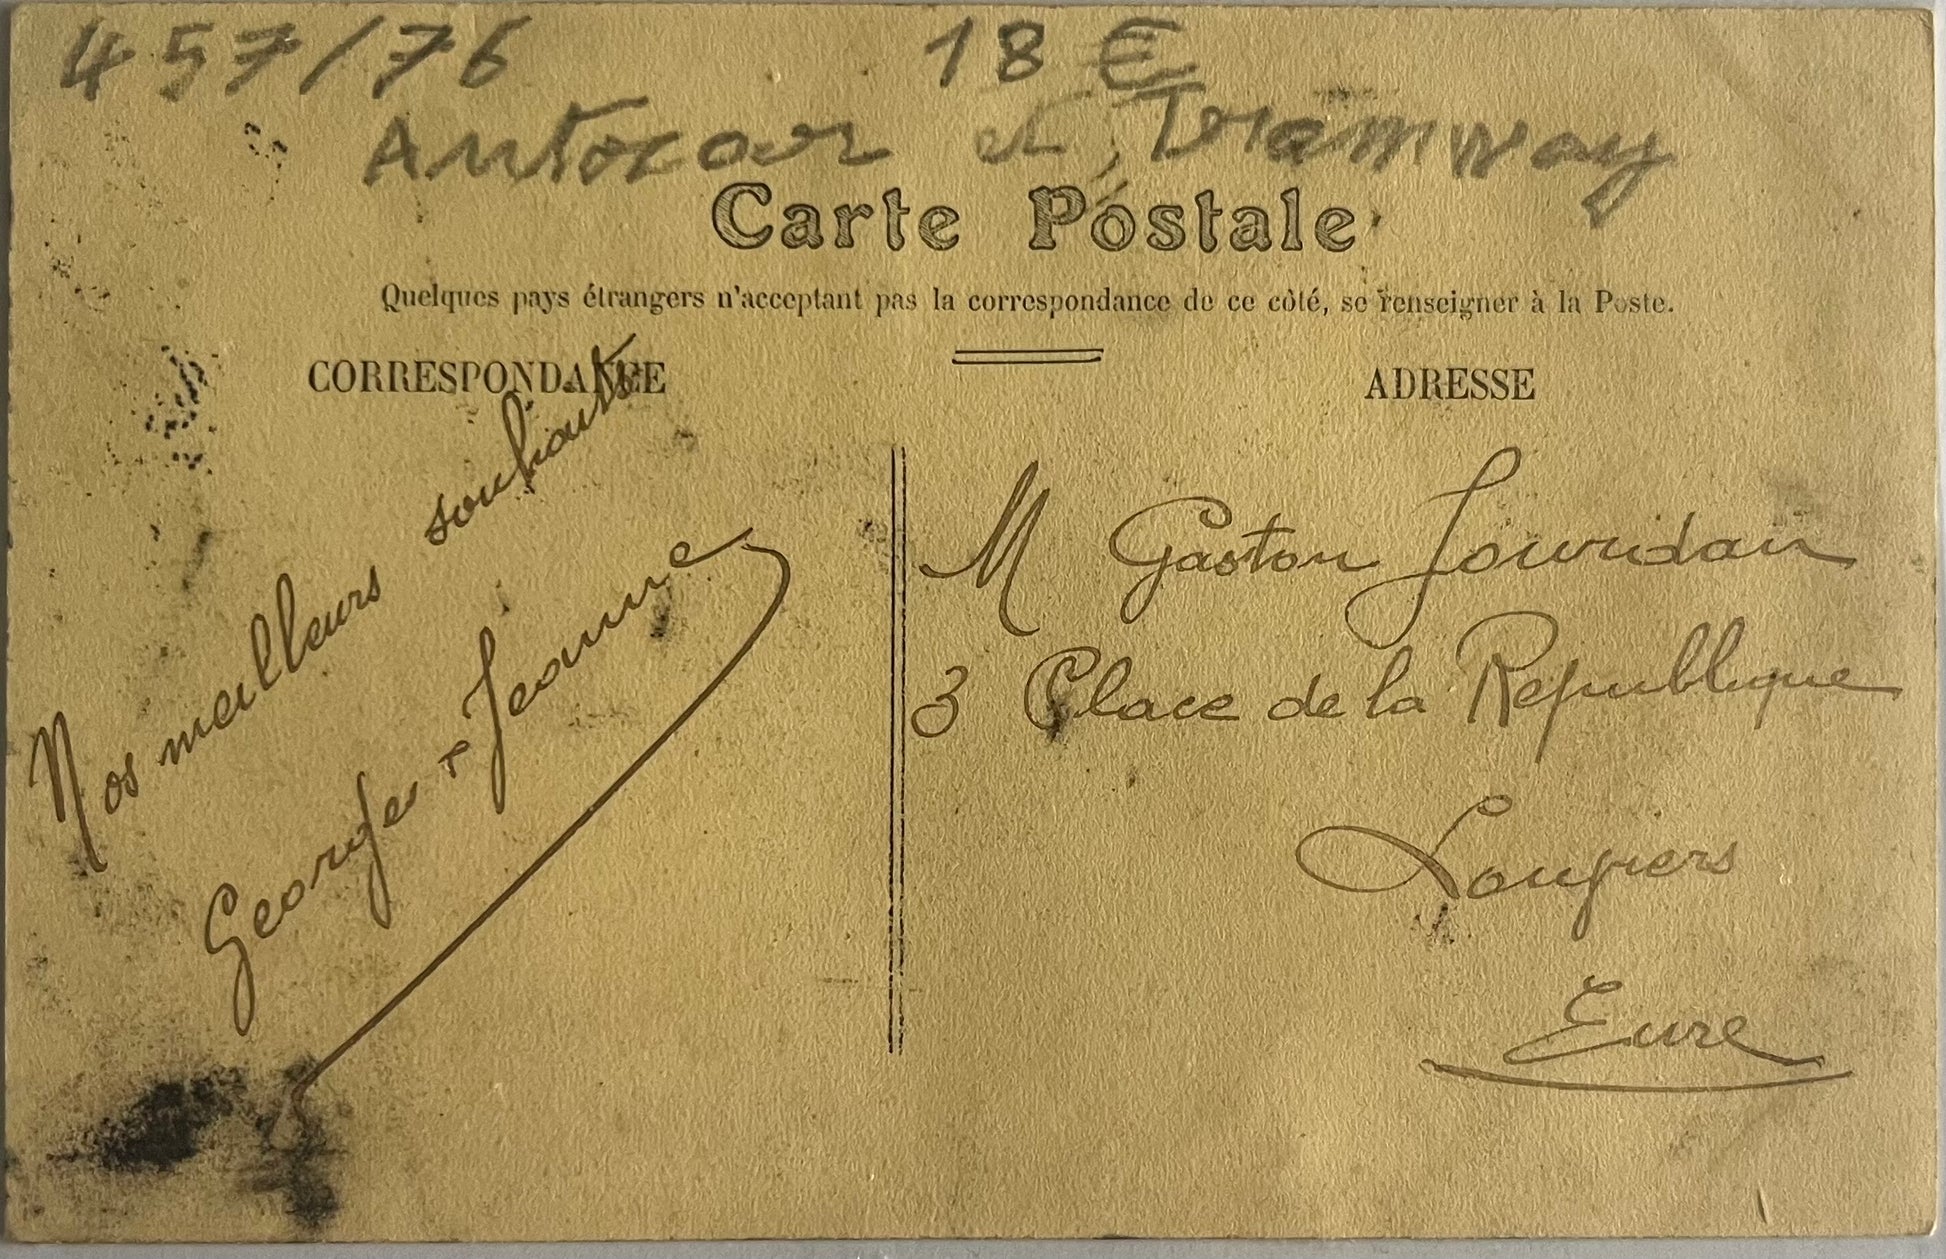 457/76 18 €
Autocar et Tramway
Carte Postale
Quelques pays étrangers n'acceptant pas la correspondance de ce côté, se renseigner à la Poste.
CORRESPONDANCE
Nos meilleurs souhaits
Georges & Jeanne
ADRESSE
M Gaston Jourdain
3 Place de la Republique
Louviers
Eure